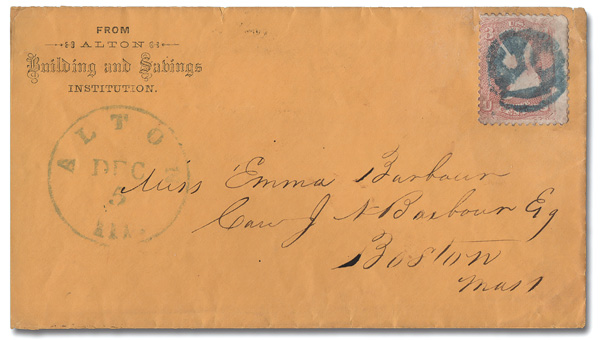 FROM
ALTON
Building and Savings
INSTITUTION.
ALTON
DEC
5
ILL.
Miss Emma Barbour
Care J N Barbour Esq
Boston
Mass